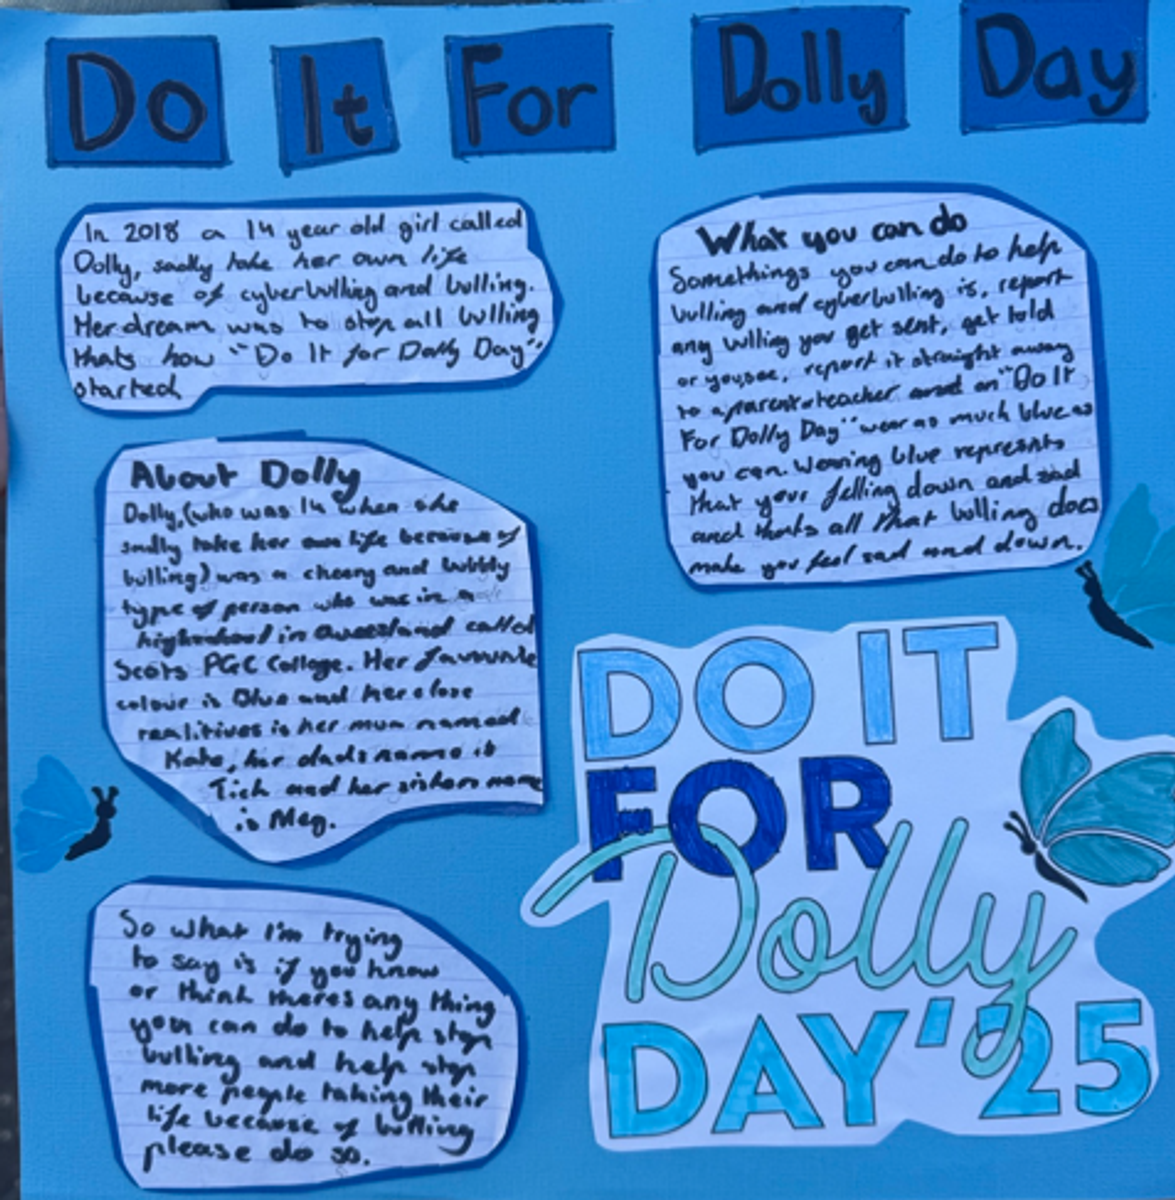 Do It For Dolly Day
In 2018 a 14 year old girl called
Dolly, sadly take her own life
because of cyberbulling and bulling.
Her dream was to stop all bulling
thats how "Do It for Dolly Day"
started
About Dolly
Dolly, (who was 14 when she
sadly take her own life because of
bulling) was a cheery and bubbly
type of person who was in a
highschool in called
Scots PGC Collage. Her favourite
colour is Blue and her close
realitives is her mum named
Kate, her dads name is
Tick and her sisters name
is Meg.
So what I'm trying
to say is if you know
or think theres any thing
you can do to help stop
bulling and help stop
more people taking their
life because of bulling
please do so.
What you can do
Somethings you can do to help
bulling and cyberbulling is, report
any you get sent, get told
or you see, report it straight away
to a parent or teacher and on "Do It
For Dolly Day" wear as much blue as
you can. Wearing blue represnts
that your felling down and sad
and thats all that bulling does
make you feel sad and down.
DO IT
FOR
Dolly
DAY '25